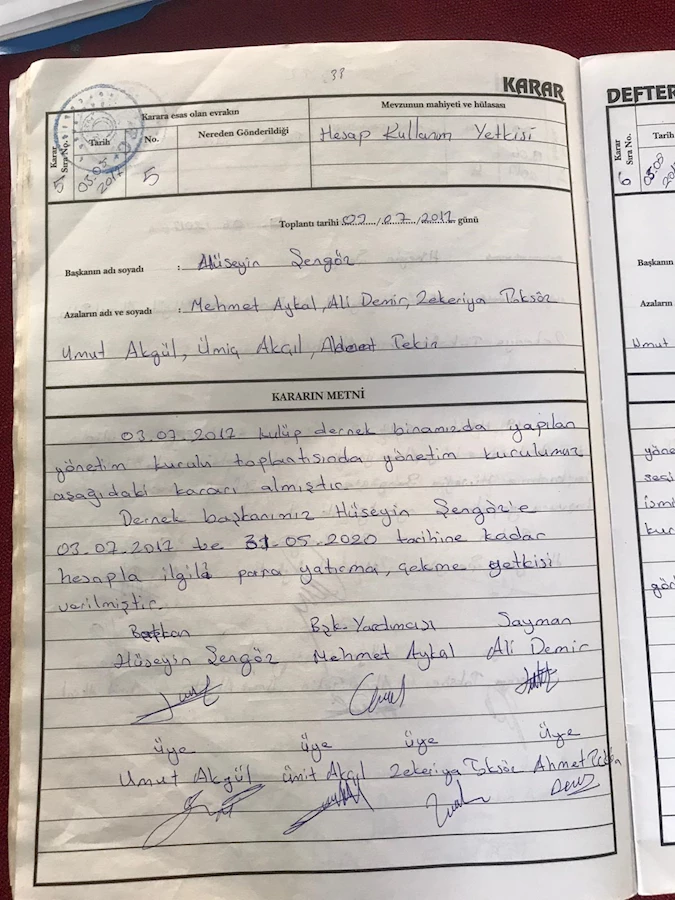 38
KARAR
Karara esas olan evrakın
Mevzunun mahiyeti ve hülasası
Karar Sıra No.
Tarih
No.
Nereden Gönderildiği
Hesap Kullanım Yetkisi
5
03.03 2017
5
Toplantı tarihi 03/07/2017 günü
Başkanın adı soyadı : Hüseyin Şengöz
Azaların adı ve soyadı : Mehmet Aykal, Ali Demir, Zekeriya Toksöz
Umut Akgül, Ümit Akçıl, Tekin
KARARIN METNİ
03.07.2017 kulüp dernek binamızda yapılan
yönetim kurulu toplantısında yönetim kurulumuz
aşağıdaki kararı almıştır.
Dernek başkanımız Hüseyin Şengöz'e
03.07.2017 be 31.05.2020 tarihine kadar
hesapla ilgili para yatırma, çekme yetkisi
verilmiştir.
Başkan Bşk. Yardımcısı Sayman
Hüseyin Şengöz Mehmet Aykal Ali Demir
üye üye üye üye
Umut Akgül Ümit Akçıl Zekeriya Toksöz Ahmet
DEFTER
Karar Sıra No.
Tarih
6
Başkanın
Azaların
Umut
yöne
sesi
kur
gör